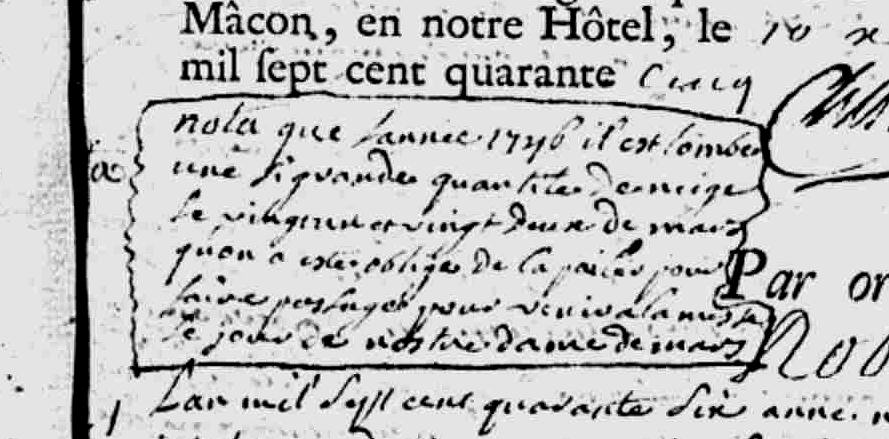 Mâcon, en notre Hôtel, le 10
mil sept cent quarante Cinq
nota que Lannee 1746 il est tombe
une si grande quantite de neige
le vingt un et vingt deux de mars
quon a este oblige de la pailer pour
faire passage pour venir a la messe
le jour de nostre dame de mars
Par or
L'an mil sept cent quarante six anne